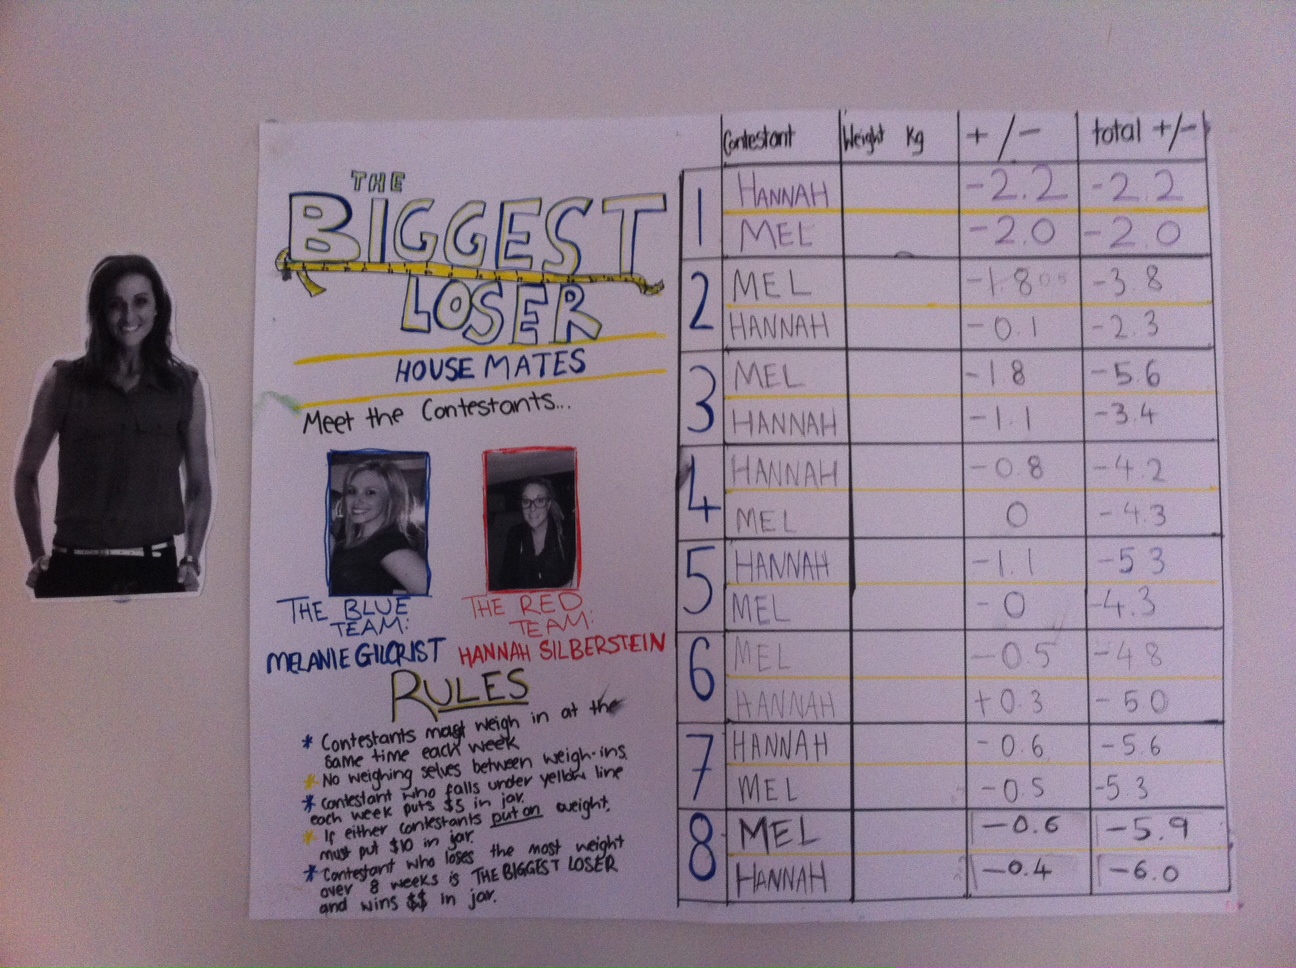 THE
BIGGEST
LOSER
HOUSE MATES
Meet the Contestants...
THE BLUE
TEAM:
MELANIE GILCRIST
THE RED
TEAM:
HANNAH SILBERSTEIN
RULES
* Contestants must weigh in at the
same time each week
* No weighing selves between weigh-ins.
* Contestant who falls under yellow line
each week puts $5 in jar.
* If either contestants put on weight,
must put $10 in jar.
* Contestant who loses the most weight
over 8 weeks is THE BIGGEST LOSER
and wins $$ in jar.
Contestant Weight Kg +/- total +/-
1 HANNAH -2.2 -2.2
MEL -2.0 -2.0
2 MEL -1.8 -3.8
HANNAH -0.1 -2.3
3 MEL -1 8 -5.6
HANNAH -1.1 -3.4
4 HANNAH -0.8 -4.2
MEL 0 -4.3
5 HANNAH -1.1 -5 3
MEL -0 -4.3
6 MEL -0.5 -4 8
HANNAH +0.3 -5 0
7 HANNAH -0.6 -5.6
MEL -0.5 -5.3
8 MEL -0.6 -5.9
HANNAH -0.4 -6.0